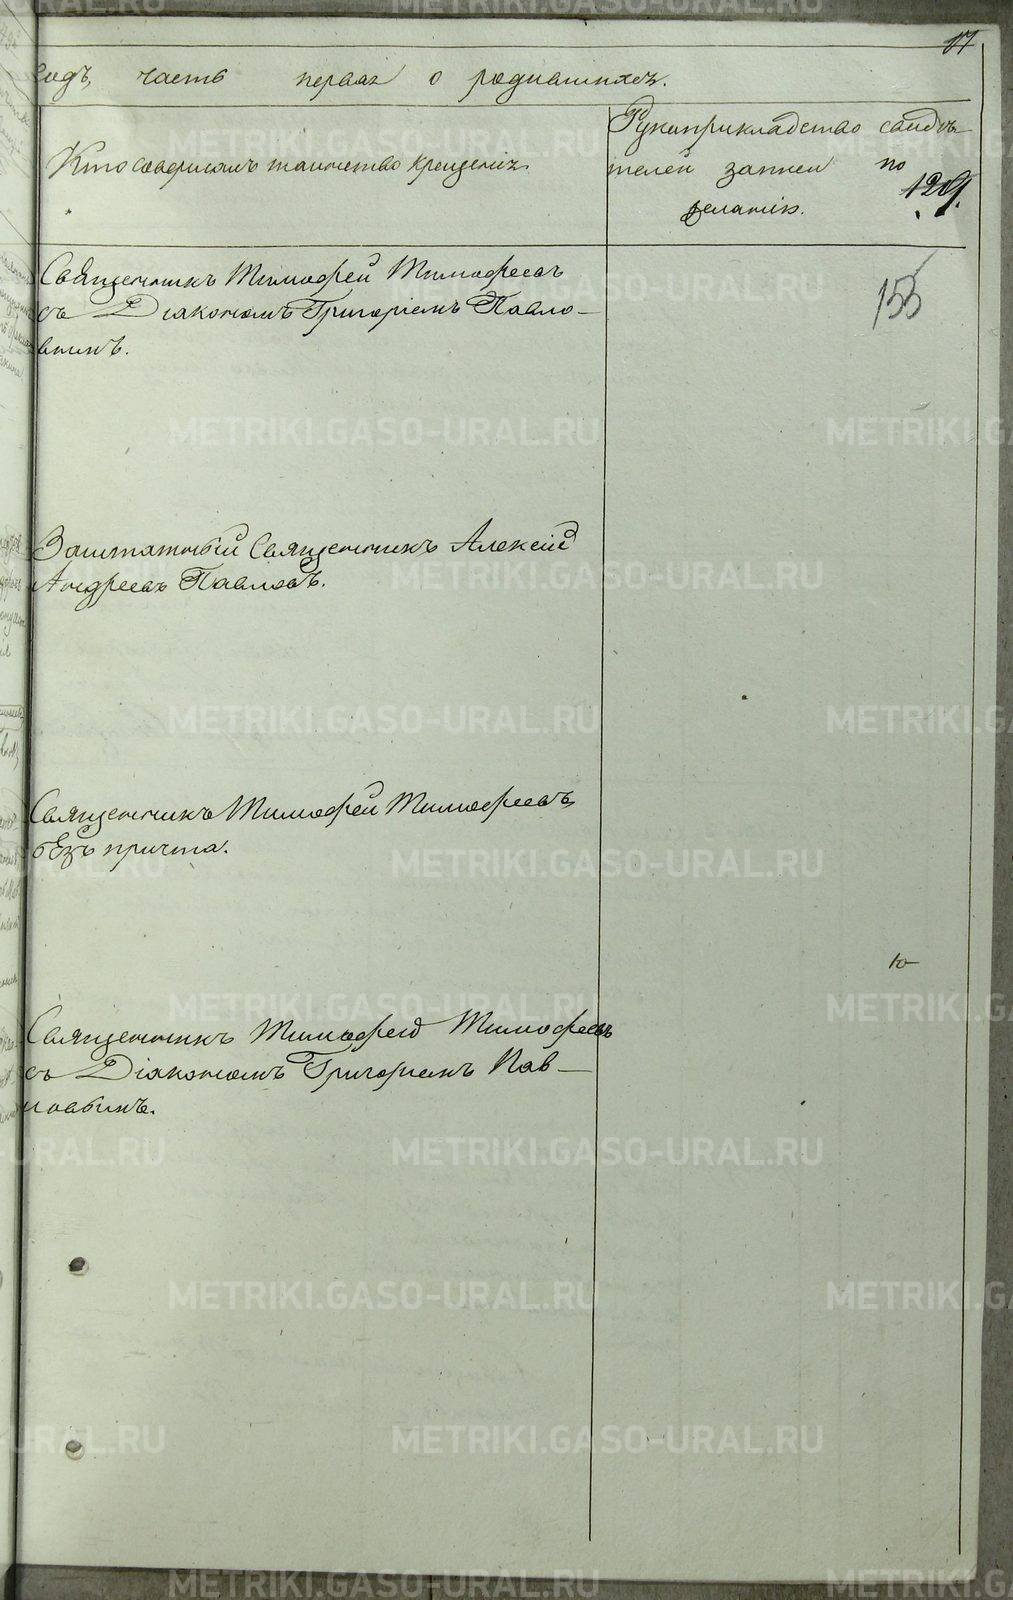 17
годъ, часть первая о родившихся.
Кто совершалъ таинство крещенія.
Рукоприкладство свидѣ-
телей записи по
желанію.
129.
155
Священникъ Тимофей Тимофеевъ
съ Діакономъ Григоріемъ Павло-
вымъ.
Заштатный Священникъ Алексій
Андреевъ Павловъ.
Священникъ Тимофей Тимофеевъ
безъ причта.
Священникъ Тимофей Тимофеевъ
съ Діакономъ Григоріемъ Пав-
ловымъ.
METRIKI.GASO-URAL.RU